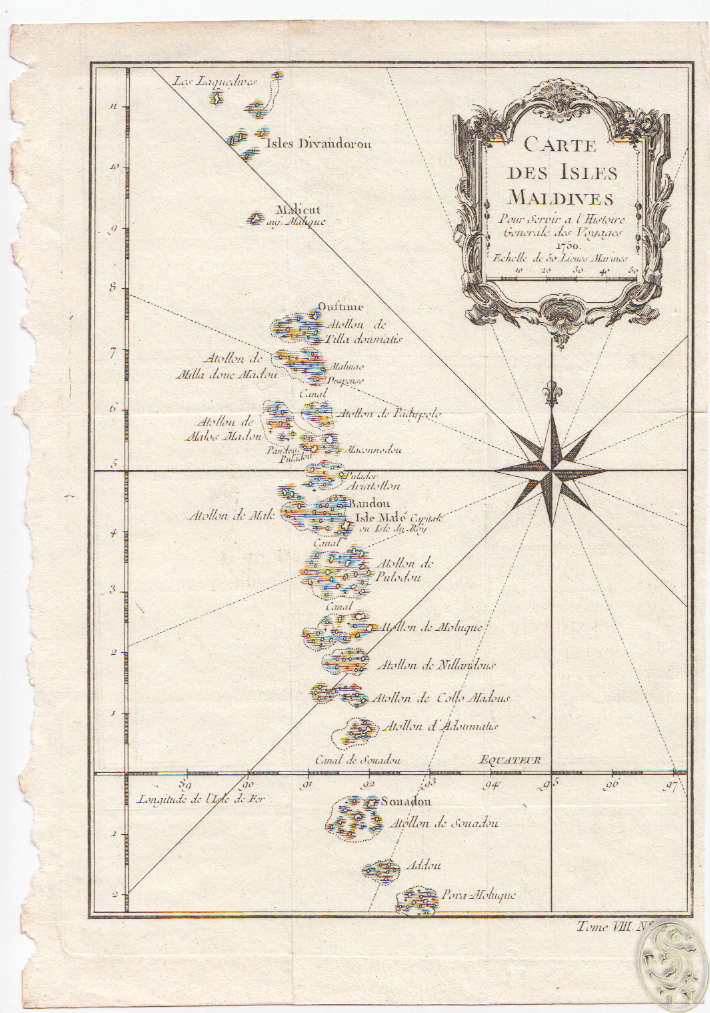 CARTE
DES ISLES
MALDIVES
Pour Servir a l'Histoire
Generale des Voyages
1750.
Echelle de 50 Lieues Marines
10 20 30 40 50
Les Laquedives
11
Isles Divandorou
10
Malicut
9
8
Oustime
Atollon de
Tilla doumatis
7
Atollon de
Milla doue Madou
Malinao
Canal
6
Atollon de Padypolo
Atollon de
Malos Madou
Pandou
Puladou
Maconnodou
5
Pulador
Ariatollon
Bandou
Atollon de Male
Isle Malé Capitale
ou Isle du Roy
4
Canal
Atollon de
Pulodou
3
Canal
Atollon de Moluque
2
Atollon de Nillandous
Atollon de Collo Madous
1
Atollon d'Adoumatis
Canal de Souadou
EQUATEUR
89 90 91 92 93 94 95 96 97
Longitude de l'Isle de Fer
Souadou
1
Atollon de Souadou
Addou
2
Pova Moluque
Tome VIII. N°